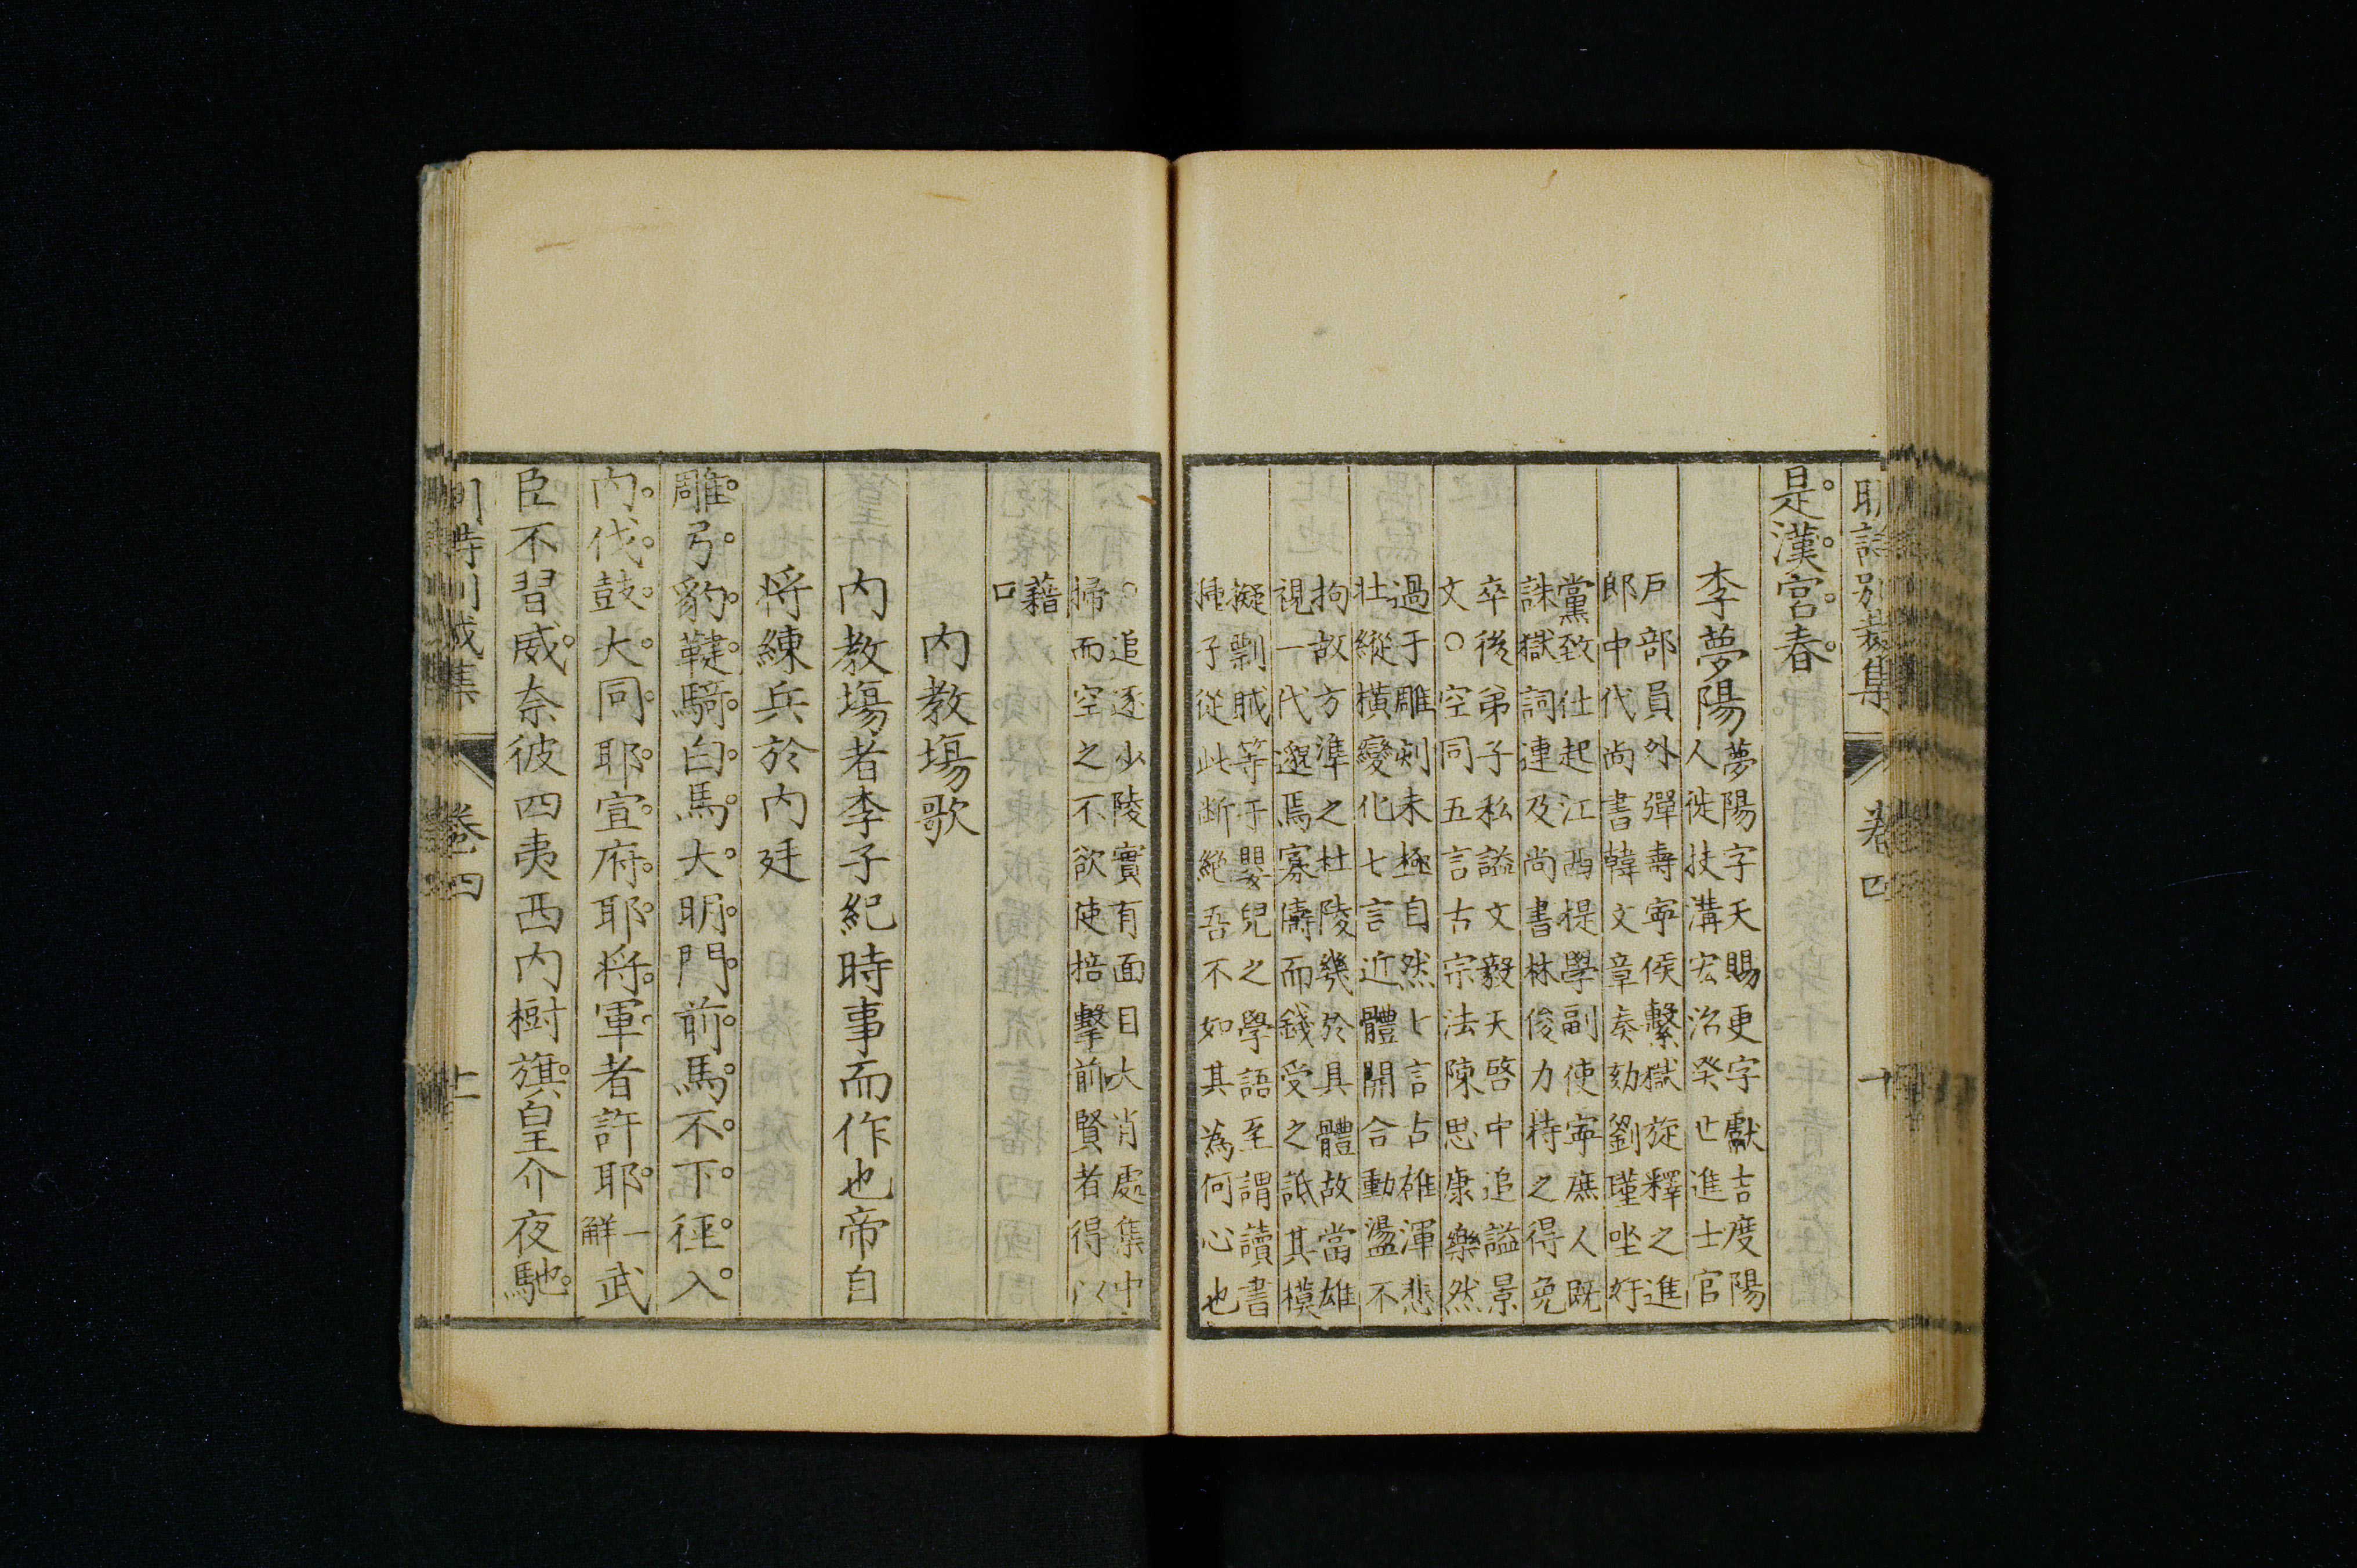 明詩別裁集 卷四 十
是漢宮春
李夢陽
夢陽字天賜更字獻吉慶陽
人徙扶溝宏治癸丑進士官
戶部員外彈壽寧侯繫獄旋釋之進
郎中代尚書韓文章奏劾劉瑾坐奸
黨致仕起江西提學副使寧庶人既
誅獄詞連及尚書林俊力持之得免
卒後弟子私謚文毅天啓中追謚景
文○空同五言古宗法陳思康樂然
過于雕刻未極自然七言古雄渾悲
壯縱橫變化七言近體開合動盪不
拘故方準之杜陵幾於具體故當雄
視一代邈焉寡儔而錢受之詆其模
擬剽賊等于嬰兒之學語至謂讀書
種子從此斷絕吾不如其為何心也
○追逐少陵實有面目大肖處集中
掃而空之不欲使掊擊前賢者得以
藉
口
內教場歌
內教場者李子紀時事而作也帝自
將練兵於內廷
雕弓豹鞬騎白馬大明門前馬不下徑入
內伐鼓大同耶宣府耶將軍者許耶一解武
臣不習威奈彼四夷西內樹旗皇介夜馳
明詩別裁集 卷四 十